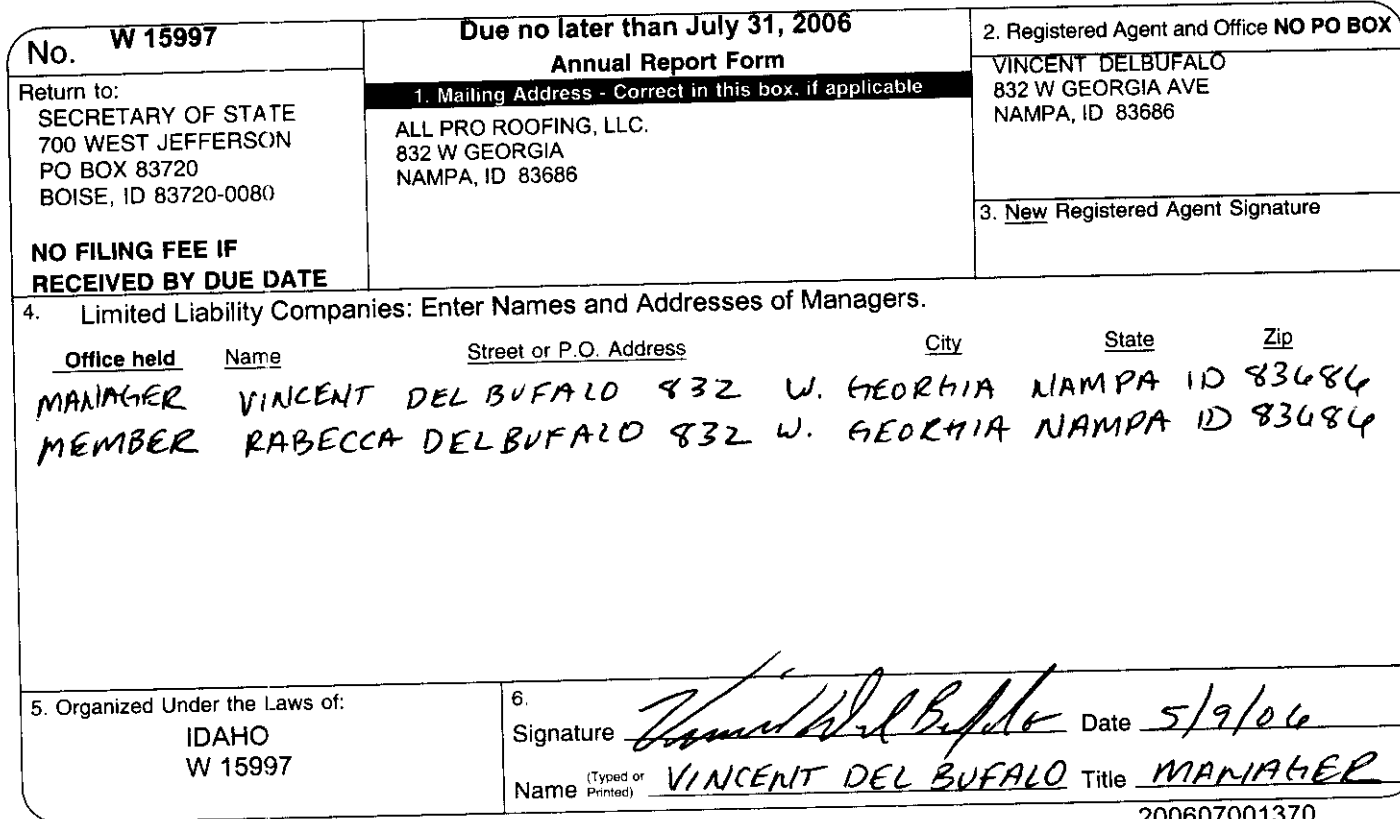 No. W 15997
Return to:
SECRETARY OF STATE
700 WEST JEFFERSON
PO BOX 83720
BOISE, ID 83720-0080
NO FILING FEE IF
RECEIVED BY DUE DATE
Due no later than July 31, 2006
Annual Report Form
1. Mailing Address - Correct in this box, if applicable
ALL PRO ROOFING, LLC.
832 W GEORGIA
NAMPA, ID 83686
2. Registered Agent and Office NO PO BOX
VINCENT DELBUFALO
832 W GEORGIA AVE
NAMPA, ID 83686
3. New Registered Agent Signature
4. Limited Liability Companies: Enter Names and Addresses of Managers.
Office held Name Street or P.O. Address City State Zip
MANAGER VINCENT DEL BUFALO 832 W. GEORGIA NAMPA ID 83686
MEMBER RABECCA DELBUFALO 832 W. GEORGIA NAMPA ID 83686
5. Organized Under the Laws of:
IDAHO
W 15997
6.
Signature Vincent Del Bufalo Date 5/9/06
Name (Typed or Printed) VINCENT DEL BUFALO Title MANAGER
200607001370